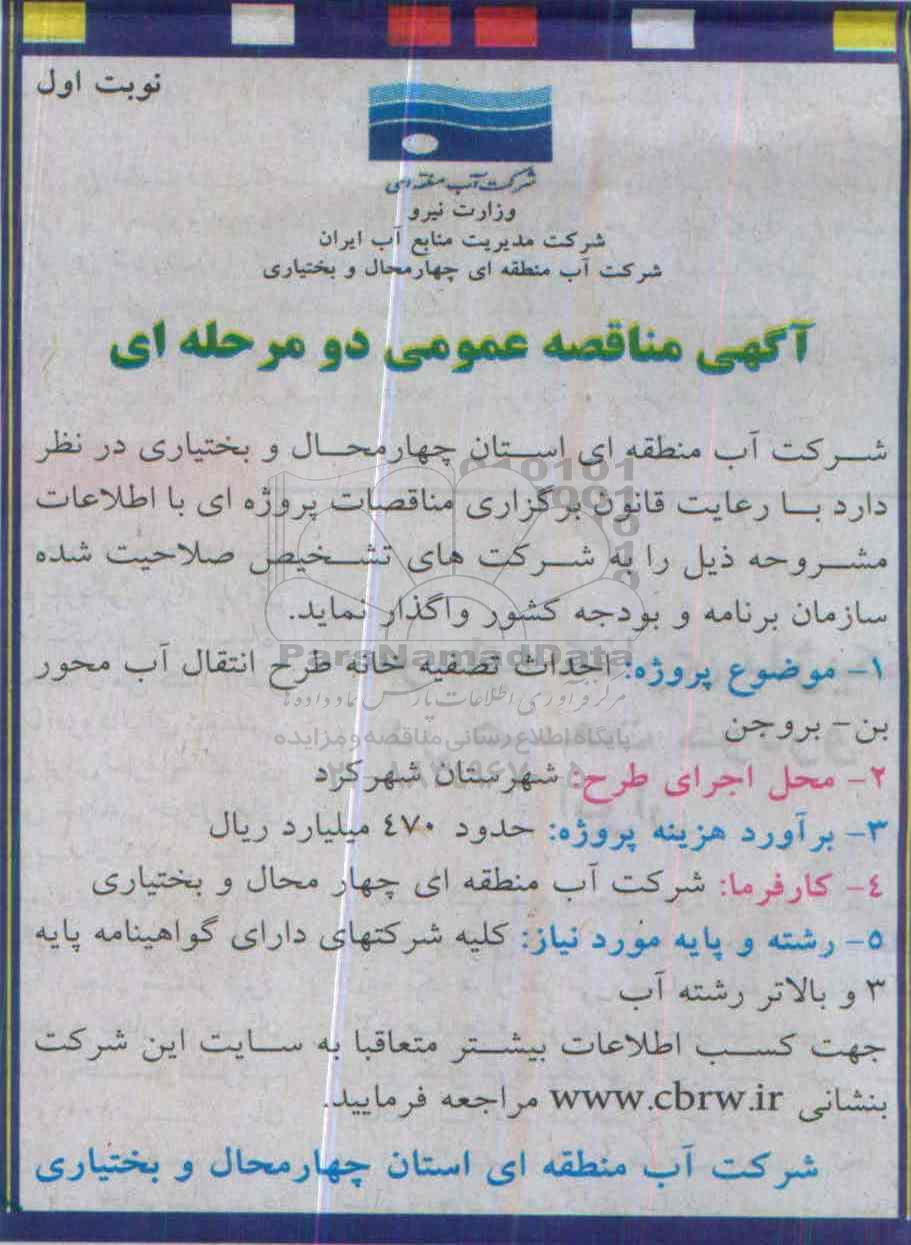 نوبت اول
شرکت آب منطقه ای
وزارت نیرو
شرکت مدیریت منابع آب ایران
شرکت آب منطقه ای چهارمحال و بختیاری
آگهی مناقصه عمومی دو مرحله ای
شرکت آب منطقه ای استان چهارمحال و بختیاری در نظر
دارد با رعایت قانون برگزاری مناقصات پروژه ای با اطلاعات
مشروحه ذیل را به شرکت های تشخیص صلاحیت شده
سازمان برنامه و بودجه کشور واگذار نماید.
۱- موضوع پروژه: احداث تصفیه خانه طرح انتقال آب محور
بن - بروجن
۲- محل اجرای طرح: شهرستان شهرکرد
۳- برآورد هزینه پروژه: حدود ٤٧٠ میلیارد ریال
٤- کارفرما: شرکت آب منطقه ای چهار محال و بختیاری
٥- رشته و پایه مورد نیاز: کلیه شرکتهای دارای گواهینامه پایه
۳ و بالاتر رشته آب
جهت کسب اطلاعات بیشتر متعاقبا به سایت این شرکت
بنشانی www.cbrw.ir مراجعه فرمایید.
شرکت آب منطقه ای استان چهارمحال و بختیاری
ParsNamadData
مرکز فرآوری اطلاعات پارس نماد داده ها
پایگاه اطلاع رسانی مناقصه و مزایده